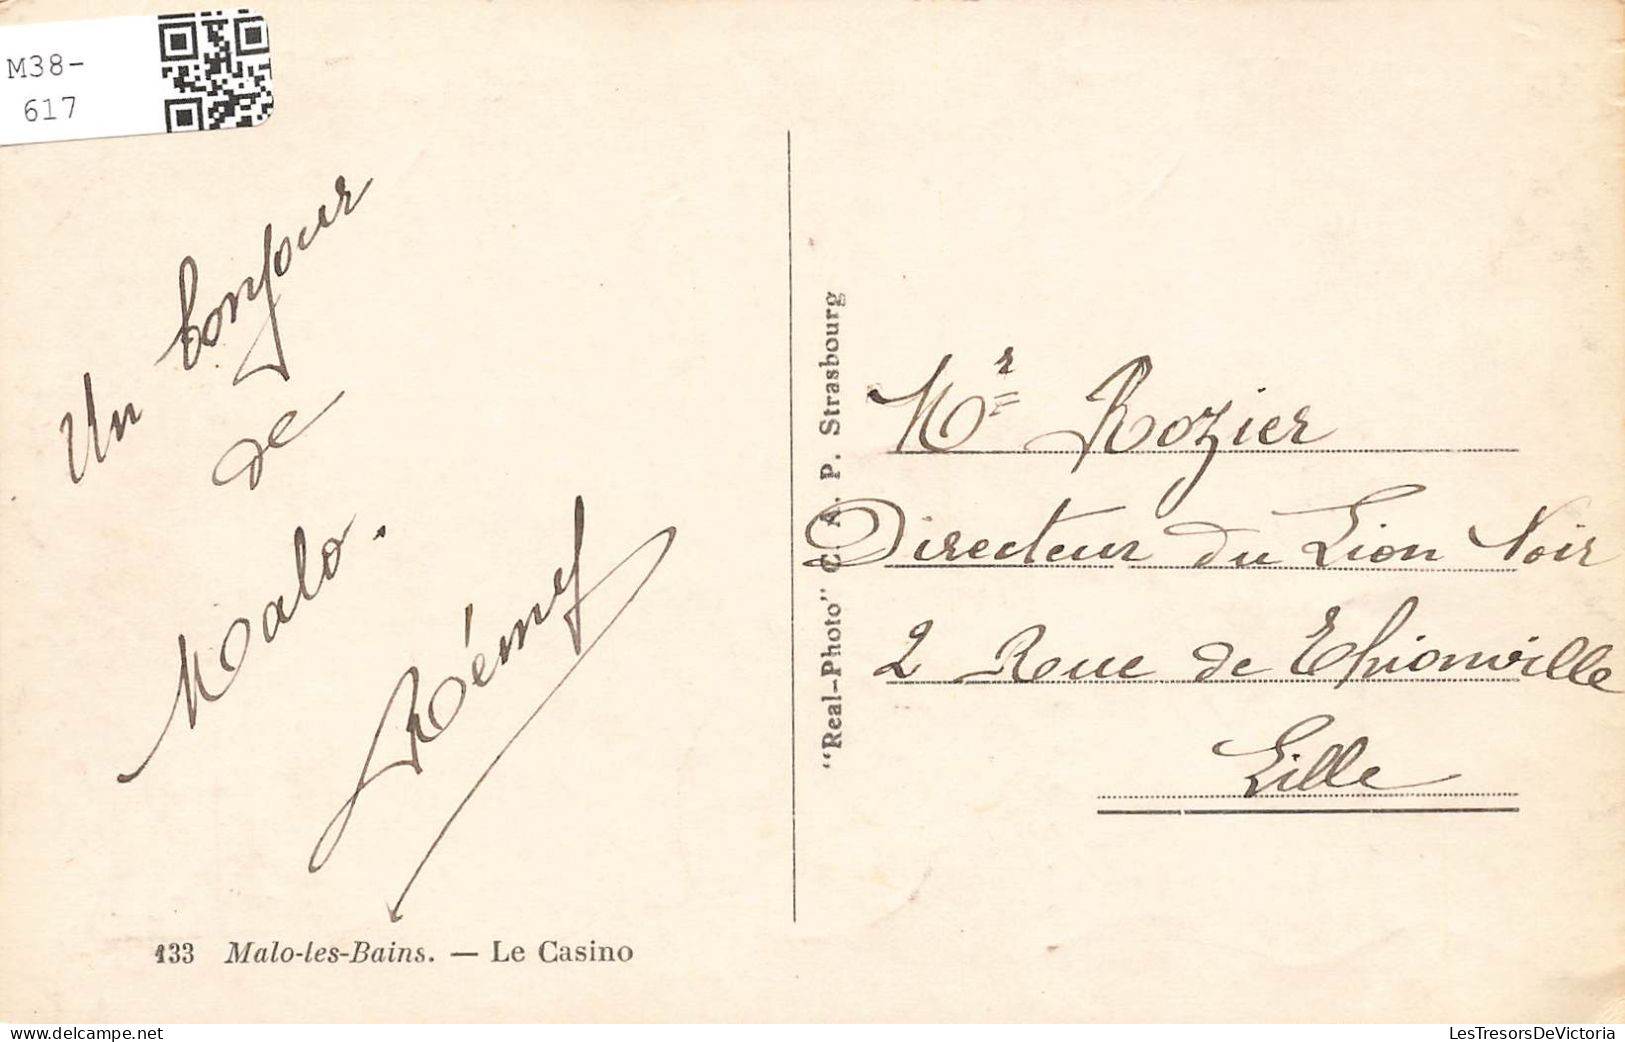 M38-
617
Un bonjour
de
Malo.
Rémy
133 Malo-les-Bains. — Le Casino
"Real-Photo" C. A. P. Strasbourg
Mr Rozier
Directeur du Lion Noir
2 Rue de Thionville
Lille
LesTresorsDeVictoria
delcampe.net